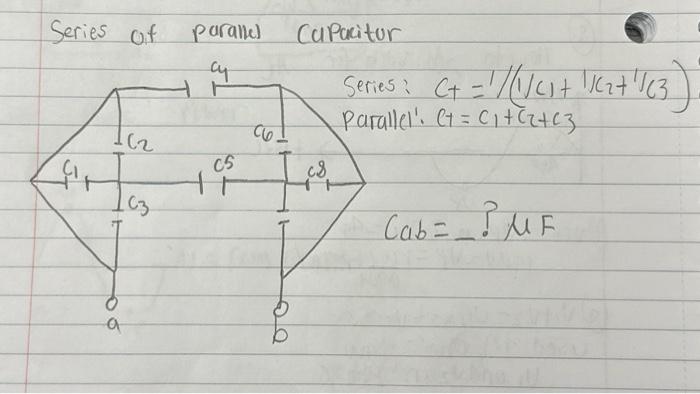 Series of parallel Capacitor
C4
Series: Ct = 1/(1/C1 + 1/C2 + 1/C3)
Parallel: Ct = C1 + C2 + C3
C2
C6
C1
C5
C8
C3
Cab = _? μF
a
b